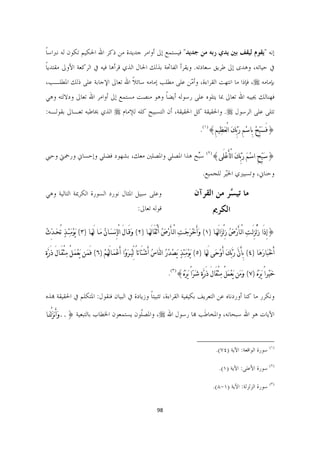 إنه "يقوم ليقف بين يدي ربه من جديد" فيستمع إلى أوامر جديدة من ذكر الله الحكيم تكون له نبراساً
في حياته، وهدى إلى طريق سعادته. ويقرأ الفاتحة بذلك الحال الذي قرأها فيه في الركعة الأولى مقتدياً
بإمامه ﷺ، فإذا ما انتهت القراءة، وأمَّن على مطلب إمامه سائلاً الله تعالى الإجابة على ذلك الطلب،
فهنالك يجيبه الله تعالى بما يتلوه على رسوله أيضاً وهو منصت مستمع إلى أوامر الله تعالى ودلالته وهي
تتلى على الرسول ﷺ. والحقيقة كل الحقيقة، أن التسبيح كله للإمام ﷺ الذي يخاطبه تعالى بقوله:
﴿ فَسَبِّحْ بِاسْمِ رَبِّكَ الْعَظِيمِ ﴾ (١).
﴿ سَبِّحِ اسْمَ رَبِّكَ الْأَعْلَى ﴾ (٢) سبِّح هذا المصلي والمصلين معك، بشهود فضلي وإحساني ورحمتي وحبي
وحناني، وتسييري الخيِّر للجميع.
ما تيسَّر من القرآن الكريم
وعلى سبيل المثال نورد السورة الكريمة التالية وهي
قوله تعالى:
﴿ إِذَا زُلْزِلَتِ الْأَرْضُ زِلْزَالَهَا (١) وَأَخْرَجَتِ الْأَرْضُ أَثْقَالَهَا (٢) وَقَالَ الْإِنْسَانُ مَا لَهَا (٣) يَوْمَئِذٍ تُحَدِّثُ
أَخْبَارَهَا (٤) بِأَنَّ رَبَّكَ أَوْحَى لَهَا (٥) يَوْمَئِذٍ يَصْدُرُ النَّاسُ أَشْتَاتًا لِيُرَوْا أَعْمَالَهُمْ (٦) فَمَنْ يَعْمَلْ مِثْقَالَ ذَرَّةٍ
خَيْرًا يَرَهُ (٧) وَمَنْ يَعْمَلْ مِثْقَالَ ذَرَّةٍ شَرًّا يَرَهُ ﴾ (٣).
ونكرر ما كنا أوردناه عن التعريف بكيفية القراءة، تثبيتاً وزيادة في البيان فنقول: المتكلم في الحقيقة بهذه
الآيات هو الله سبحانه، والمخاطَب بها رسول الله ﷺ، والمصلُّون يستمعون الخطاب بالتبعية ﴿ .. وَأَنْزَلْنَا
(١) سورة الواقعة: الآية (٧٤).
(٢) سورة الأعلى: الآية (١).
(٣) سورة الزلزلة: الآية (١-٨).
98